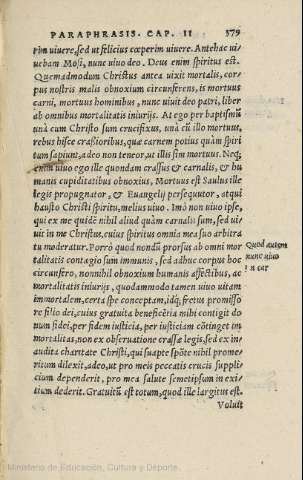 PARAPHRASIS. CAP. II 579
rim uiuere, sed ut felicius cœperim uiuere. Antehac ui/
uebam Mosi, nunc uiuo deo. Deus enim spiritus est.
Quemadmodum Christus antea uixit mortalis, cor/
pus nostris malis obnoxium circunferens, is mortuus
carni, mortuus hominibus, nunc uiuit deo patri, liber
ab omnibus mortalitatis iniurijs. At ego per baptismũ
unà cum Christo sum crucifixus, unà cũ illo mortuus,
rebus hisce crassioribus, quæ carnem potius quàm spiri
tum sapiunt, adeo non teneor, ut illis sim mortuus. Neq;
enim uiuo ego ille quondam crassus & carnalis, & hu
manis cupiditatibus obnoxius, Mortuus est Saulus ille
legis propugnator, & Euangelij persequutor, at qui
hausto Christi spiritu, melius uiuo. Imò non uiuo ipse,
qui ex me quidẽ nihil aliud quàm carnalis sum, sed ui/
uit in me Christus, cuius spiritus omnia mea suo arbitra
tu moderatur. Porrò quod nondũ prorsus ab omni mor
talitatis contagio sum immunis, sed adhuc corpus hoc
circunfero, nonnihil obnoxium humanis affectibus, ac
mortalitatis iniurijs, quodammodo tamen uiuo uitam
immortalem, certa spe conceptam, idq; fretus promisso
re filio dei, cuius gratuita beneficẽtia mihi contigit do
num fidei, per fidem iusticia, per iusticiam cõtinget im
mortalitas, non ex obseruatione crassæ legis, sed ex in/
audita charitate Christi, qui suapte spõte nihil prome/
ritum dilexit, adeo, ut pro meis peccatis crucis suppli/
cium dependerit, pro mea salute semetipsum in exi/
tium dederit. Gratuitũ est totum, quod ille largitus est.
Voluit
Quod autem
nunc uiuo
in car
Ministerio de Educación, Cultura y Deporte